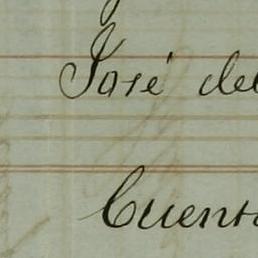 José del
Cuenta